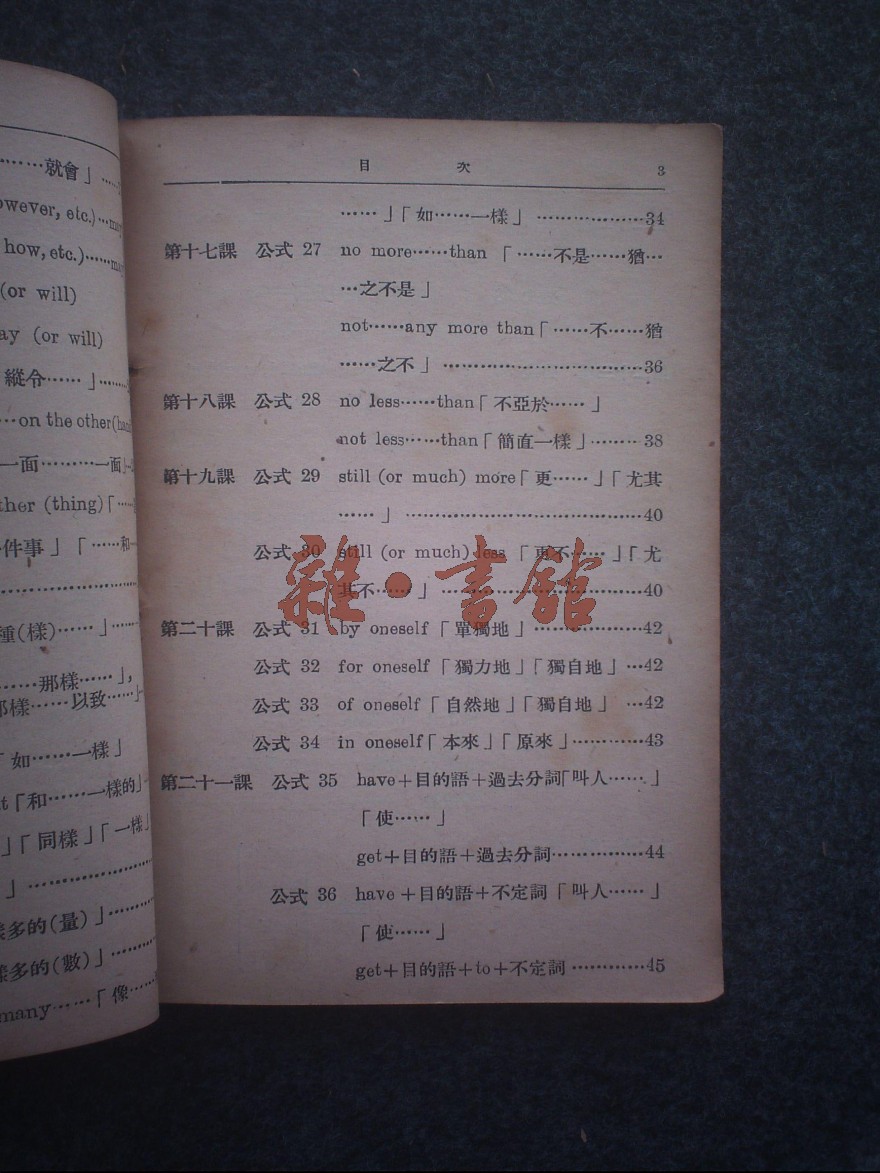 ……就會」……
owever, etc.)…may
how, etc.)……may
(or will)
ay (or will)
縱令……」……
…on the other(hand
一面………一面」
ther (thing)「……
件事」「……和
種(樣)……」……
……那樣……」,
那樣……以致……」
「如……一樣」
t「和……一樣的」
」「同樣」「一樣」
」………………
樣多的(量)」………
樣多的(數)」………
many……「像……
目 次 3
……」「如……一樣」………………34
第十七課 公式 27 no more……than「……不是……猶…
…之不是」
not……any more than「……不……猶
……之不」…………………………36
第十八課 公式 28 no less……than「不亞於……」
not less……than「簡直一樣」………38
第十九課 公式 29 still (or much) more「更……」「尤其
……」………………………………40
公式 30 still (or much) less「更不……」「尤
其不……」…………………………40
第二十課 公式 31 by oneself「單獨地」………………42
公式 32 for oneself「獨力地」「獨自地」…42
公式 33 of oneself「自然地」「獨自地」…42
公式 34 in oneself「本來」「原來」…………43
第二十一課 公式 35 have＋目的語＋過去分詞「叫人……」
「使……」
get＋目的語＋過去分詞……………44
公式 36 have＋目的語＋不定詞「叫人……」
「使……」
get＋目的語＋to＋不定詞…………45
雜·書館